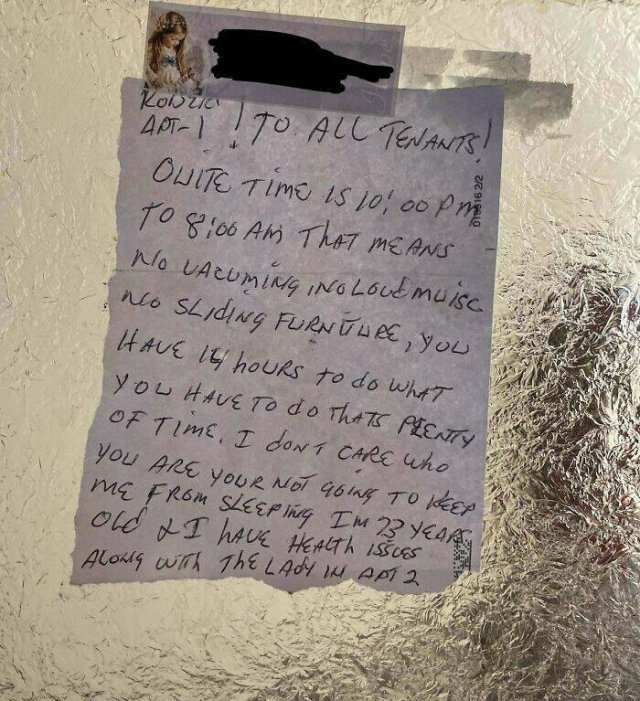 APT-1 ! TO ALL TENANTS!
QUITE TIME IS 10:00 PM
TO 8:00 AM THAT MEANS
NO VACUMING, NO LOUD MUISC
NO SLIDING FURNITURE, YOU
HAVE 14 HOURS TO do WHAT
YOU HAVE TO do THATS PLENTY
OF TIME. I don'T CARE who
YOU ARE YOUR NOT GOING TO KEEP
ME FROM SLEEPING IM 73 YEARS
Old & I hAVE HEALTH ISSUES
ALONG WITH THE LADY IN APT 2
019916 2/2